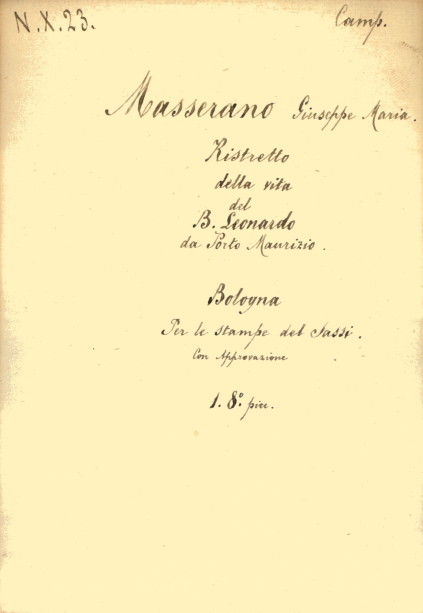 N.X.23.
Camp.
Masserano Giuseppe Maria.
Ristretto
della vita
del
B. Leonardo
da Porto Maurizio.
Bologna
Per le stampe del Sassi.
Con Approvazione
1. 8.° picc.